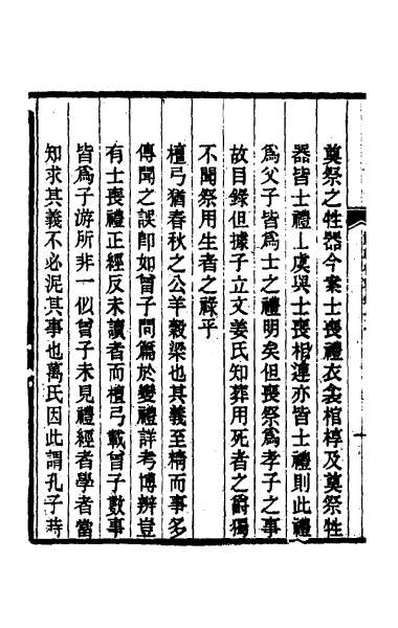 奠祭之牲器今案士喪禮衣衾棺椁及奠祭牲
器皆士禮士虞與士喪相連亦皆士禮則此禮
爲父子皆爲士之禮明矣但喪祭爲孝子之事
故目錄但據子立文姜氏知葬用死者之爵獨
不聞祭用生者之祿乎
檀弓猶春秋之公羊穀梁也其義至精而事多
傳聞之誤卽如曾子問篇於變禮詳考博辨豈
有士喪禮正經反未讀者而檀弓載曾子數事
皆爲子游所非一似曾子未見禮經者學者當
知求其義不必泥其事也萬氏因此謂孔子時